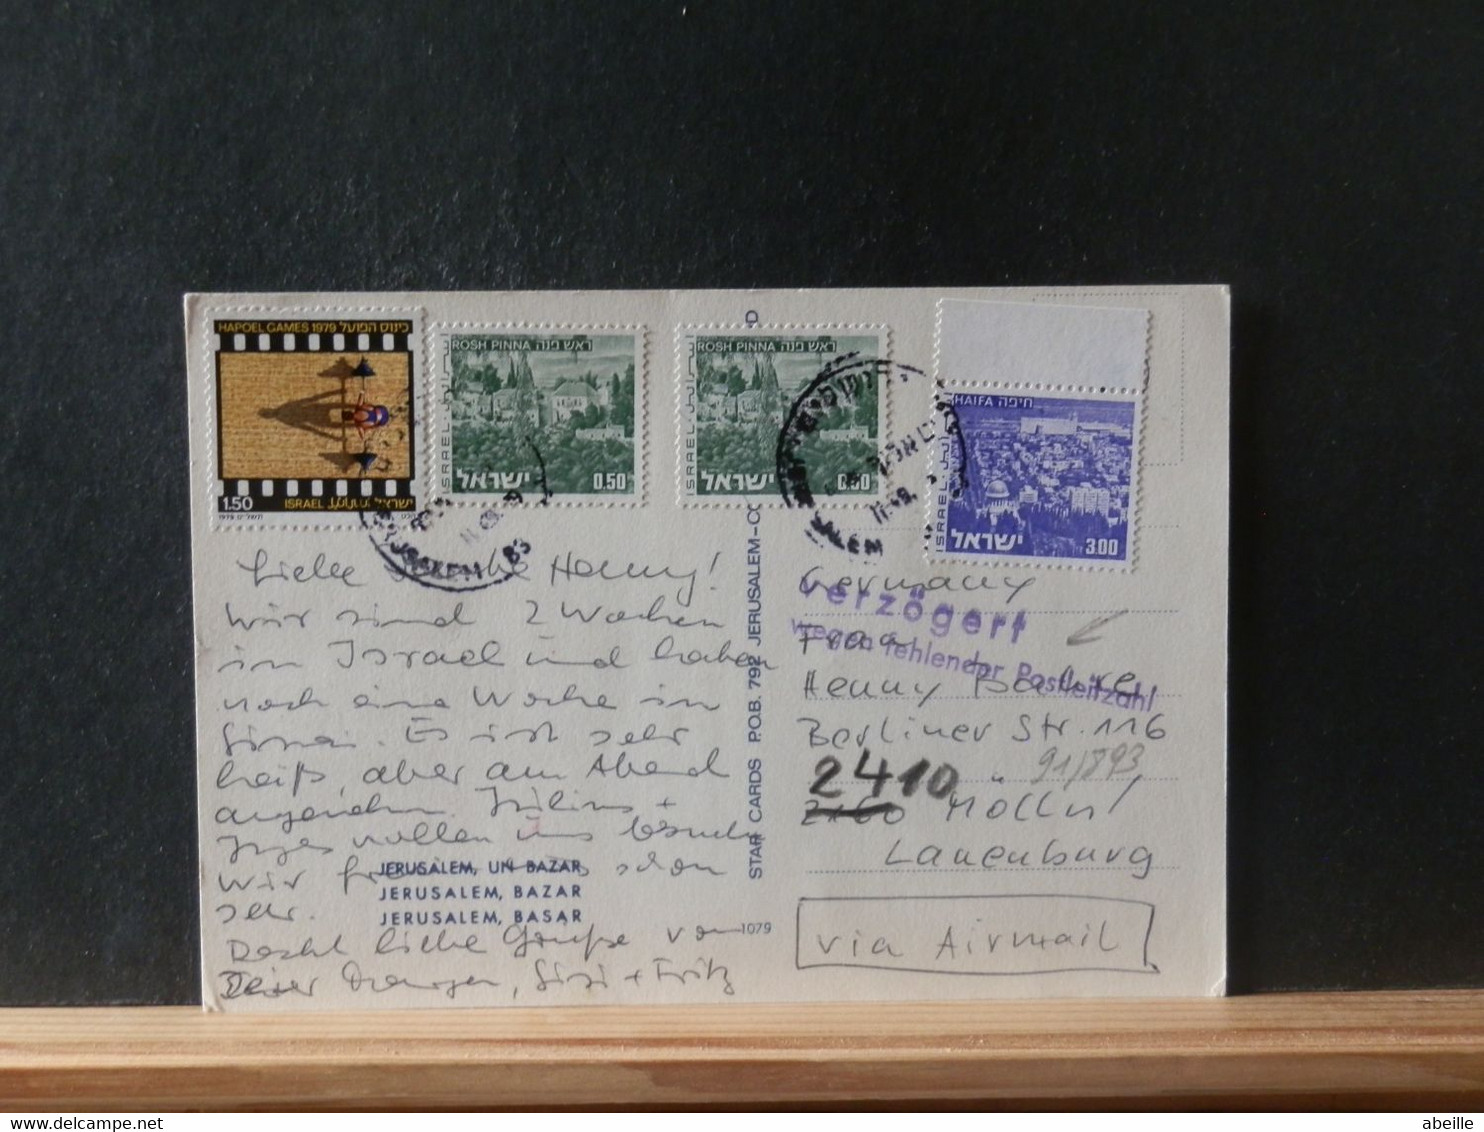 HAPOEL GAMES 1979 כינוס הפועל
1.50 ISRAEL اسرائيل ישראל
1979
ROSH PINNA ראש פנה
ISRAEL اسرائيل
ישראל 0.50
ROSH PINNA ראש פנה
ISRAEL اسرائيل
ישראל 0.50
HAIFA חיפה
ISRAEL اسرائيل
ישראל 3.00
JERUSALEM 83
Liebe Henny!
Wir sind 2 Wochen
in Israel und haben
noch eine Woche in
Sinai. Es ist sehr
heiß, aber am Abend
angenehm. Julius +
wollen uns besuchen
Wir schon
sehr.
Recht liebe Grüße von
Sisi + Fritz
JERUSALEM, UN BAZAR
JERUSALEM, BAZAR
JERUSALEM, BASAR
1079
STAR CARDS P.O.B. 792 JERUSALEM
Germany
verzögert
wegen fehlender Postleitzahl
Frau
Henny
Berliner Str. 116
91/893
2410 Mölln/
Lauenburg
via Airmail
abeille